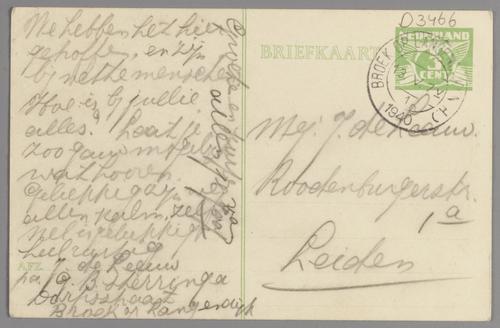 We hebben het hier
getroffen, en zijn
bij nette menschen
Hoe is bij jullie
alles? Laat je
zoo gauw mogelijk
wat hooren.
Gelukkig zijn
allen kalm, zelf
heel rustig
AFZ. J. de Leeuw
p/a B. Sherringa
Dorpsstraat
Broek op Langendijk
Groeten en
allen
BRIEFKAART
D3466
NEDERLAND
3
CENT
BROEK
1940
(H)
Mej. J. de Leeuw.
Roodenburgerstr.
1a
Leiden